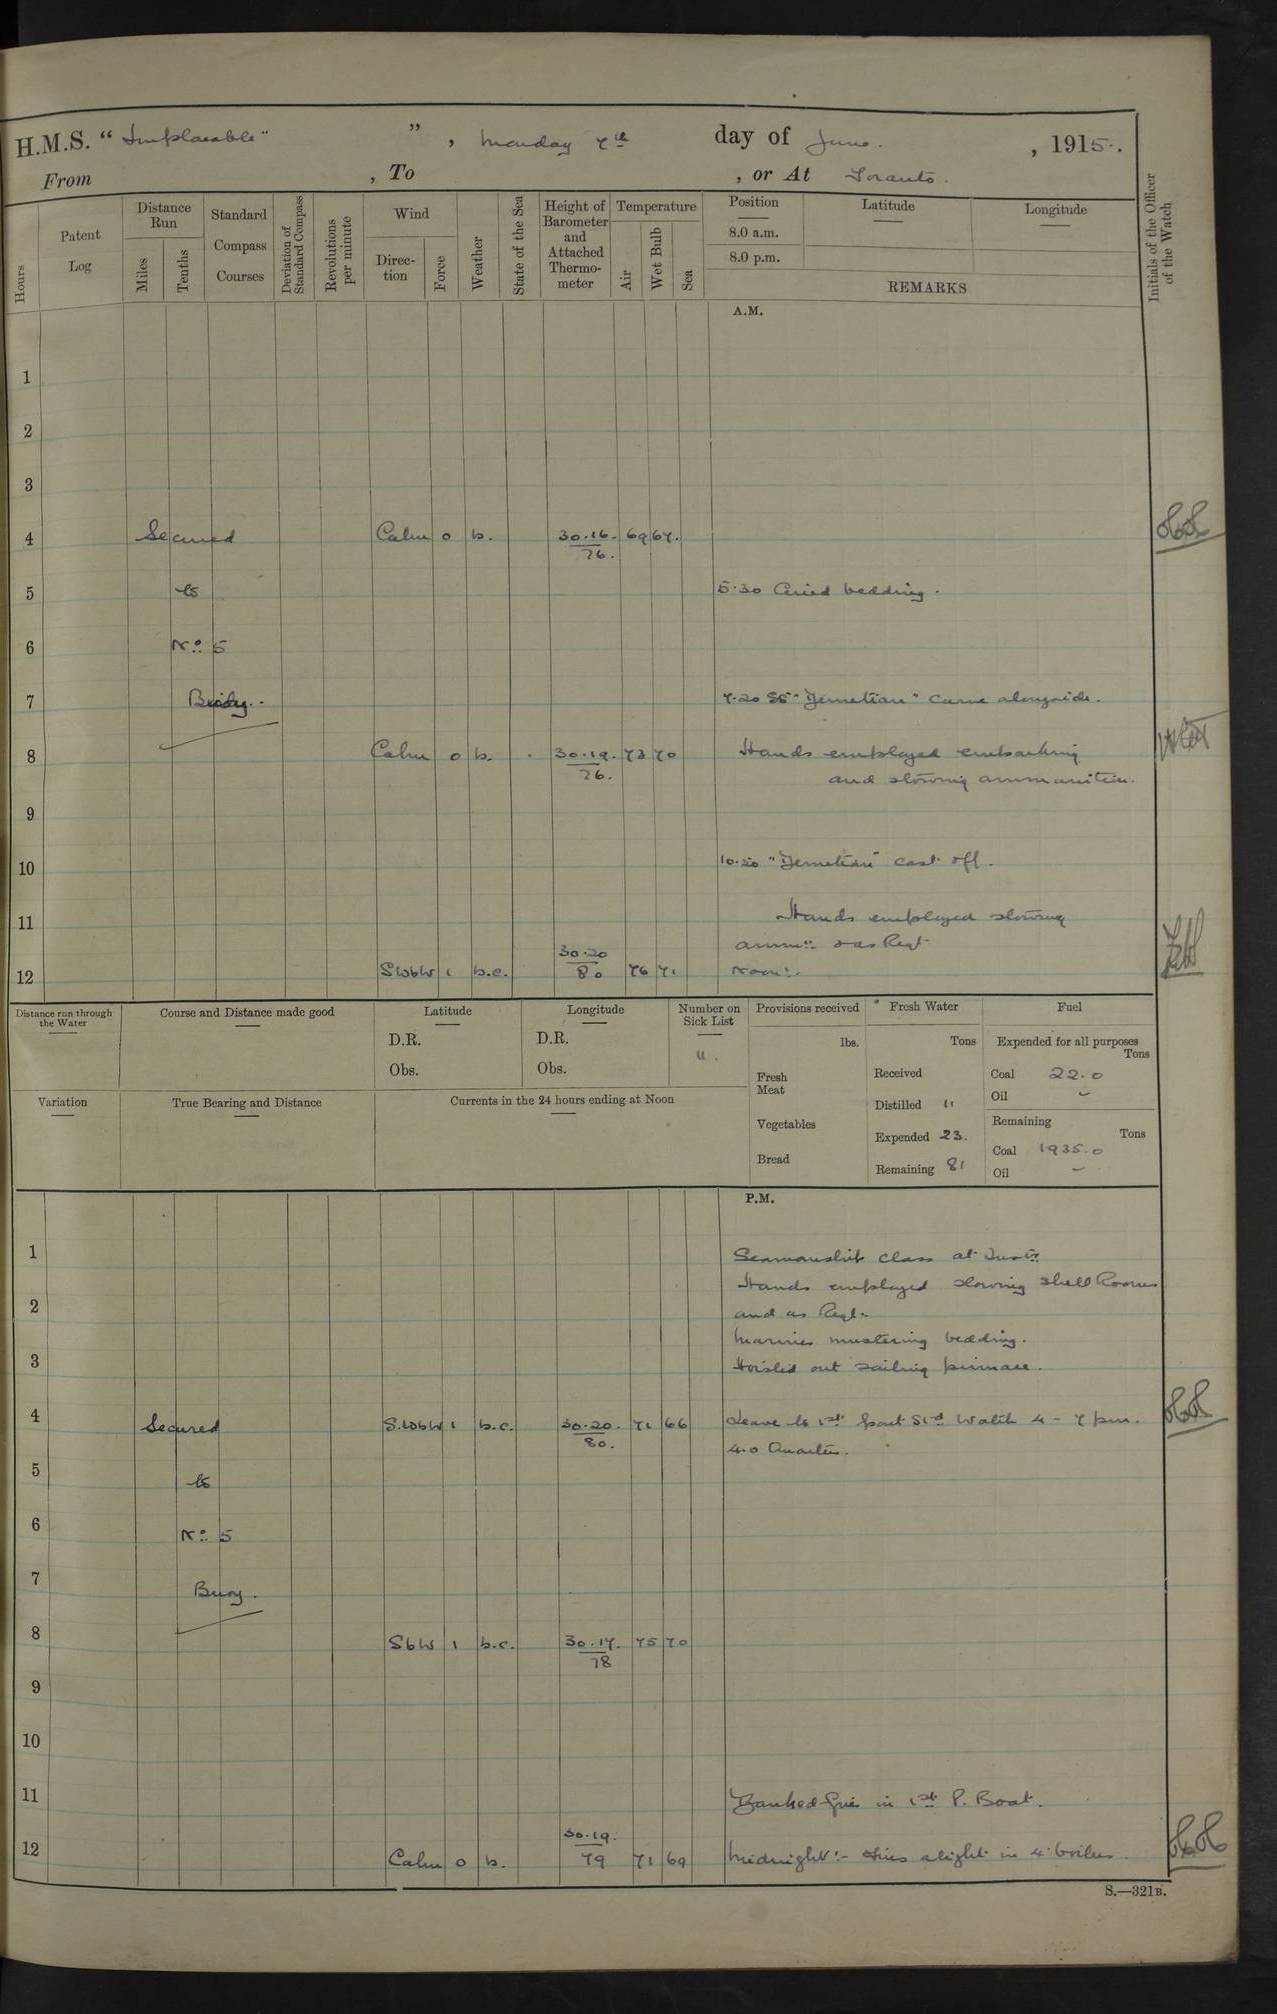 H.M.S. "Implacable" ", Monday 7th day of June. , 1915.
From , To , or At Taranto.
Hours
Patent Log
Distance Run
Miles
Tenths
Standard Compass Courses
Deviation of Standard Compass
Revolutions per minute
Wind
Direction
Force
Weather
State of the Sea
Height of Barometer and Attached Thermometer
Temperature
Air
Wet Bulb
Sea
Position
8.0 a.m.
8.0 p.m.
Latitude
Longitude
REMARKS
Initials of the Officer of the Watch
A.M.
1
2
3
4 Secured Calm 0 b. 30.16. 69 67.
76.
5 to 5.30 Aired bedding.
6 No. 5
7 Buoy. 7.20 SS "Demetian" came alongside.
8 Calm 0 b. 30.19. 73 70 Hands employed embarking
76. and stowing ammunition.
9
10 10.20 "Demetian" cast off.
11 Hands employed stowing
ammn. & as Reqt.
12 SWbW 1 b.c. 30.20 76 71 Noon:-
80
Distance run through the Water
Course and Distance made good
Latitude
D.R.
Obs.
Longitude
D.R.
Obs.
Number on Sick List
11.
Provisions received
lbs.
Fresh Meat
Vegetables
Bread
Fresh Water
Tons
Received
Distilled 11
Expended 23.
Remaining 81
Fuel
Expended for all purposes
Tons
Coal 22.0
Oil -
Remaining
Tons
Coal 1935.0
Oil -
Variation
True Bearing and Distance
Currents in the 24 hours ending at Noon
P.M.
1 Seamanship class at Instn.
Hands employed stowing Shell Rooms
2 and as Reqt.
Marines mustering bedding.
3 Hoisted out sailing pinnace.
4 Secured S.WbW 1 b.c. 30.20. 71 66 Leave to 1st part Std Watch 4 - 7 pm.
80. 4.0 Quarters.
5 to
6 No. 5
7 Buoy.
8 SbW 1 b.c. 30.17. 75 70
78
9
10
11 Banked fires in 1st P. Boat.
12 Calm 0 b. 30.19. 71 69 Midnight:- Fires alight in 4 boilers.
79
S.—321B.